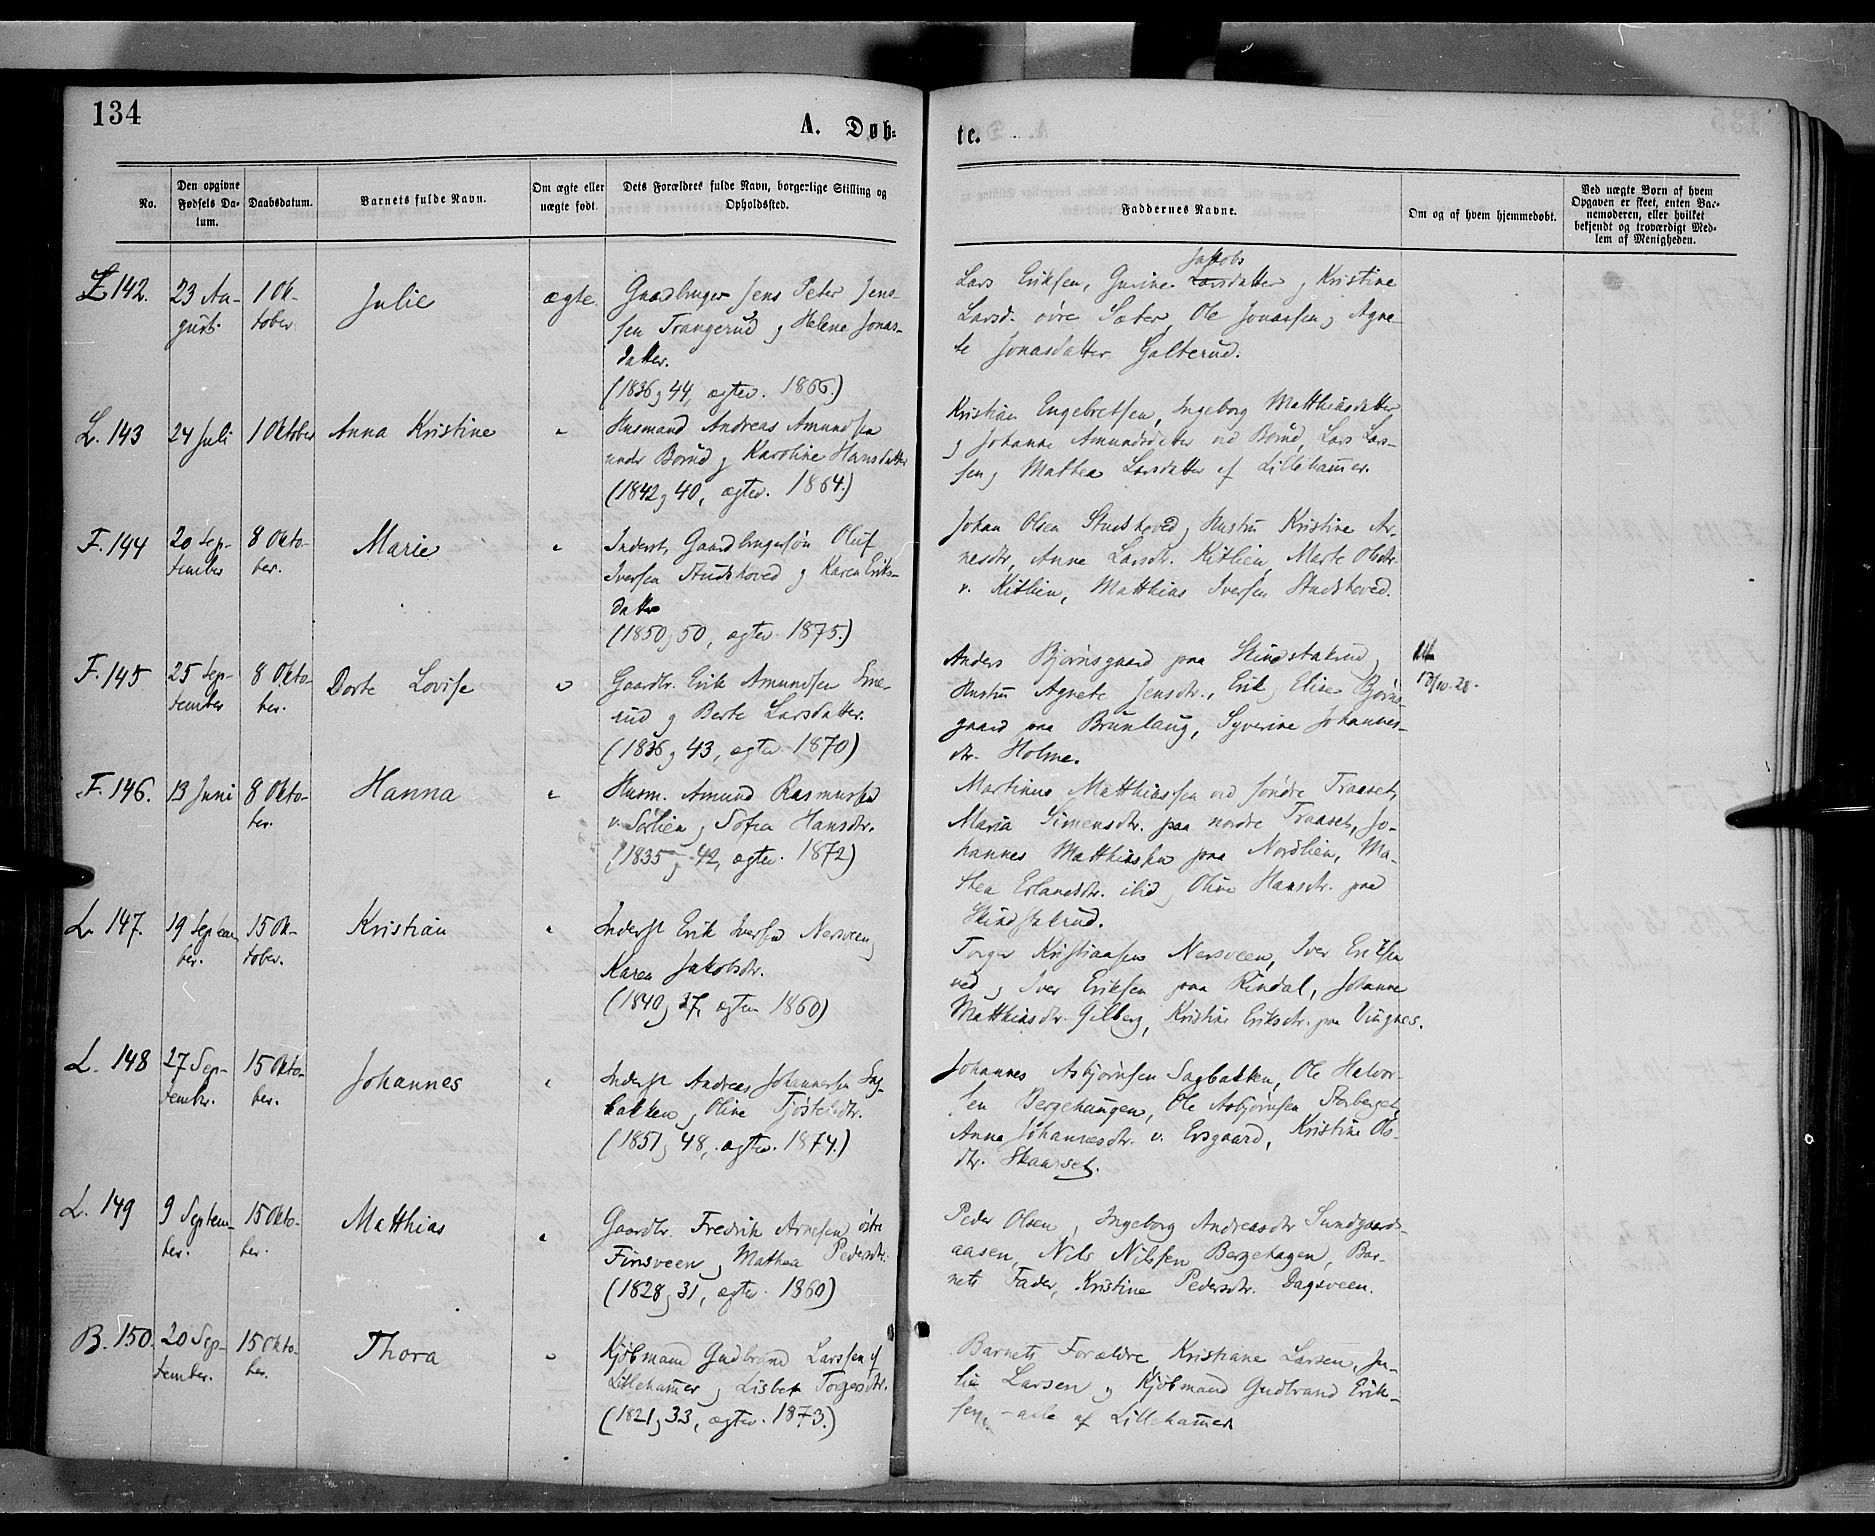 134
A. Døb-
te.
No.
Den opgivne Fødsels Datum.
Daabsdatum.
Barnets fulde Navn.
Om ægte eller uægte født.
Dets Forældres fulde Navn, borgerlige Stilling og Opholdssted.
Faddernes Navne.
Om og af hvem hjemmedøbt.
Ved uægte Born af hvem Opgaven er skeet, enten Barnemoderen, eller hvilket bekjendt og troværdigt Medlem af Menigheden.
142.
23 Au-
gust.
1 Ok-
tober
Julie
ægte
Gaardbruger Jens Peter Jens-
sen Trangerud og Helene Jonas-
datter.
(1836 og 44, ægtev. 1866.)
Jakobs
Lars Eriksen, Gurine Larsdatter og Kristine
Larsd. øvre Sæter, Ole Jonassen og Agne-
te Jonasdatter Galterud.
L. 143
24 Juli
1 Oktober
Anna Kristine
"
Husmand Andreas Amundsen
under Borud og Karoline Hansdatter
(1842 og 40, ægtev. 1864.)
Kristian Engebretsen, Ingeborg Matthiasdatter
og Johanne Amundsdatter ved Borud, Lars Lars-
sen og Mathea Larsdatter af Lillehamer.
F. 144
20 Sep-
tember
8 Okto-
ber.
Marie
"
Inderst, Gaardbrugersøn Oluf
Iversen Studshoved og Karen Eriks-
datter
(1850 og 50, ægtev. 1875.)
Johan Olsen Studshoved og Hustru Kristine Ar-
nesdtr, Anne Larsdtr. Kitlien, Marte Olsdtr.
v. Kitlien, Matthias Iversen Studshoved.
F. 145
25 Sep-
tember
8 Okto-
ber.
Dorte Lovise
"
Gaardbr. Erik Amundsen Sme-
rud og Berte Larsdatter.
(1836 og 43, ægtev. 1870)
Anders Bjørnsgaard paa Skindstakrud,
Hustru Agnete Jensdtr., Erik og Eline Bjørns-
gaard paa Brunlaug, Syverine Johannes-
dtr. Holme.
F. 146.
13 Juni
8 Okto-
ber.
Hanna
"
Husm. Amund Rasmussen
v. Sørlien og Sofia Hansdtr.
(1835 og 42, ægtev. 1872)
Martinus Matthiassen ved søndre Traaset,
Maria Simensdtr. paa nordre Traaset, Jo-
hannes Matthiassen paa Nordlien, Ma-
thea Erlandsdtr. ibid, Oline Hansdtr. paa
Skindstakrud.
L. 147.
19 Septem-
ber.
15 Ok-
tober.
Kristian
"
Inderst Erik Iversen Nersveen og
Karen Jakobsdtr.
(1840 og 37, ægtev 1860)
Torger Kristiansen Nersveen, Iver Eriksen
ved og Iver Eriksen paa Rindal, Johanne
Matthiasdtr. Gilberg, Kristine Eriksdtr. paa Vingnes.
L. 148
27 Sep-
tember.
15 Okto-
ber.
Johannes
"
Inderst Andreas Johannessen Sag-
bakken og Oline Tjøstelsdtr.
(1851 og 48, ægtev. 1874.)
Johannes Asbjørnsen Sagbakken, Ole Halvor-
sen Bergehaugen, Ole Asbjørnsen Storberget,
Anne Johannesdtr. v. Ersgaard, Kristine Ols-
dtr. Skaarset.
L. 149
9 Septem-
ber.
15 Okto-
ber.
Matthias
"
Gaardbr. Fredrik Arnesen østre
Finsveen og Mathea Pedersdtr.
(1828 og 31, ægtev. 1860)
Peder Olsen og Ingeborg Andreasdtr Sundgaards-
aasen, Nils Nilssen Bergehagen, Bar-
nets Fader, Kristine Pedersdtr. Dagsveen.
B. 150.
20 Sep-
tember.
15 Okto-
ber.
Thora
"
Kjøbmand Gudbrand Larssen af
Lillehamer og Lisbet Torgersdtr.
(1821 og 33, ægtev. 1873.)
Barnets Forældre, Kristiane Larsen, Ju-
lie Larsen og Kjøbmand Gudbrand Erik-
sen, - alle af Lillehamer